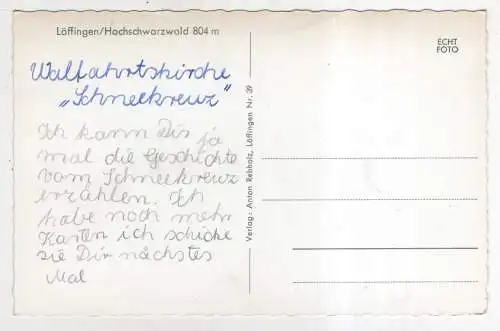 Löffingen/Hochschwarzwald 804 m
ECHT
FOTO
Walfahrtskirche
„Schneekreuz"
Ich kann Dir ja
mal die Geschichte
vom Schneekreuz
erzählen. Ich
habe noch mehr
Karten ich schicke
sie Dir nächstes
Mal
Verlag: Anton Rebholz, Löffingen Nr. 39